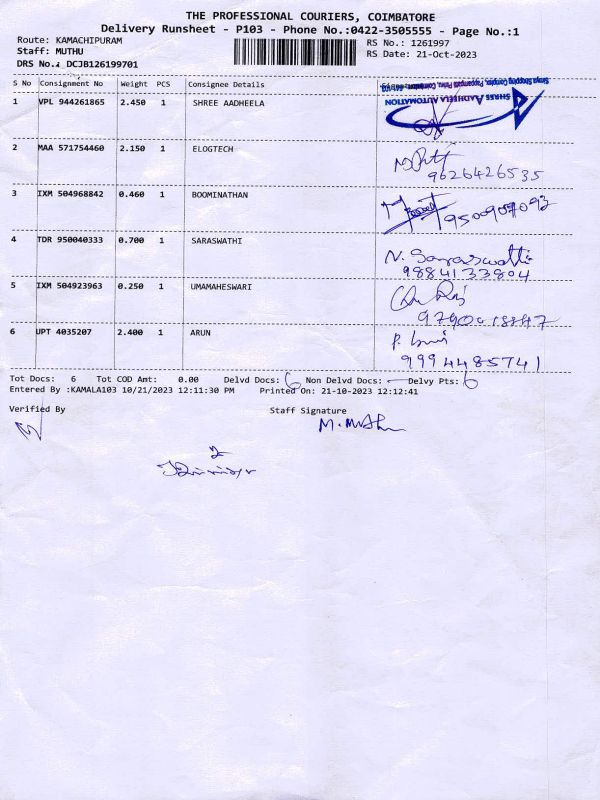 THE PROFESSIONAL COURIERS, COIMBATORE
Delivery Runsheet - P103 - Phone No.:0422-3505555 - Page No.:1
Route: KAMACHIPURAM RS No.: 1261997
Staff: MUTHU RS Date: 21-Oct-2023
DRS No.: DCJB126199701
S No Consignment No Weight PCS Consignee Details
1 VPL 944261865 2.450 1 SHREE AADHEELA
SHREE AADHEELA AUTOMATION
2 MAA 571754460 2.150 1 ELOGTECH
9626426535
3 IXM 504968842 0.460 1 BOOMINATHAN
4 TDR 950040333 0.700 1 SARASWATHI N. Saraswathi
9884133804
5 IXM 504923963 0.250 1 UMAMAHESWARI
6 UPT 4035207 2.400 1 ARUN
9994485741
Tot Docs: 6 Tot COD Amt: 0.00 Delvd Docs: 6 Non Delvd Docs: - Delvy Pts: 6
Entered By :KAMALA103 10/21/2023 12:11:30 PM Printed On: 21-10-2023 12:12:41
Verified By Staff Signature